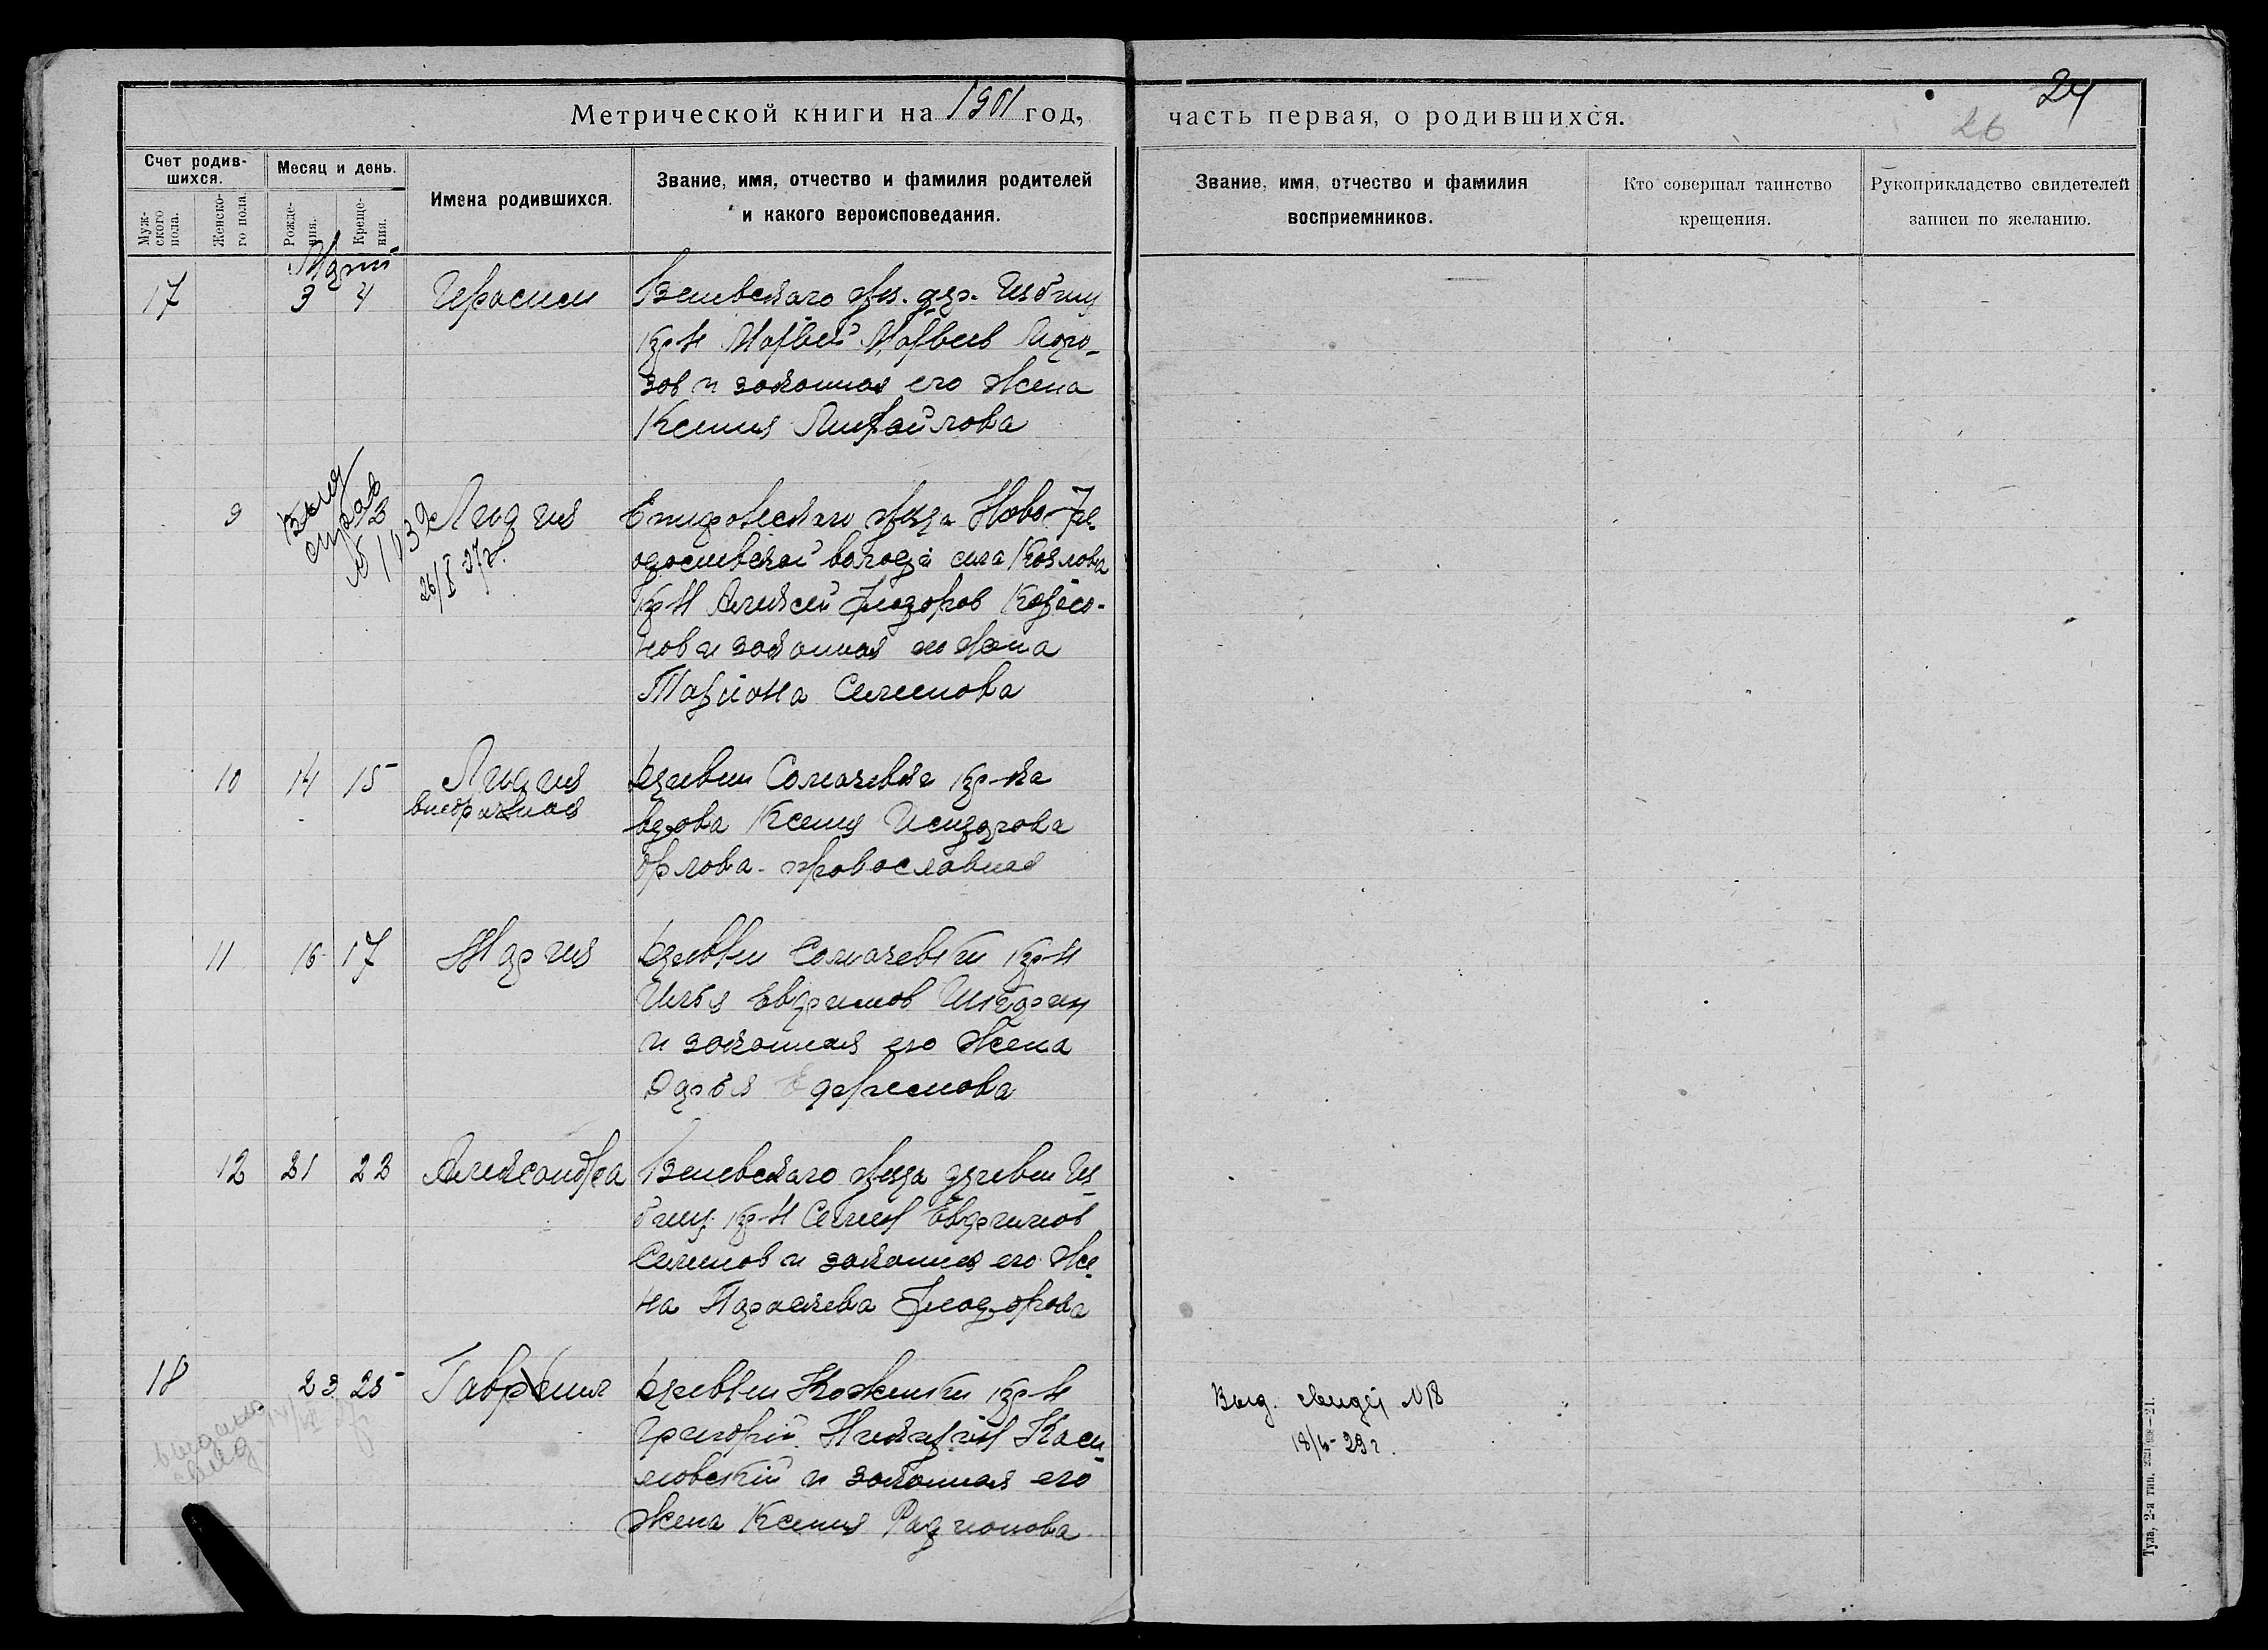 Метрической книги на 1901 год,
часть первая, о родившихся.
24
26
Счет родив-
шихся.
Муж-
ского
пола.
Женско-
го пола.
Месяц и день.
Рожде-
ния.
Креще-
ния.
Имена родившихся.
Звание, имя, отчество и фамилия родителей
и какого вероисповедания.
Звание, имя, отчество и фамилия
восприемников.
Кто совершал таинство
крещения.
Рукоприкладство свидетелей
записи по желанию.
Март
17 3 4 Герасим
Веневского уез. дер. Избищ
кр-н Матвей Матвеев Моро-
зов и законная его жена
Ксения Михайлова
9 Лидия
Выд
справ
№ 1039
26/I 37г.
Епифанского уезда Ново-
волости села Козлова
кр-н Алексей Феодоров
нов и законная его жена
Татиана Семенова
10 14 15 Лидия
внебрачная
деревни Сомачевки кр-ка
вдова Ксения Исидорова
Орлова - православная
11 16 17 Мария
деревни Сомачевки кр-н
Илья Евфимов
и законная его жена
Дарья Ефремова
12 21 22 Александра
Веневского уезда деревни Из-
бищ кр-н Семен Евфимов
Семенов и законная его же-
на Параскева Феодорова
18 23 25 Гавриил
выдана
свид.
деревни кр-н
Григорий Никитин
мовский и законная его
жена Ксения Радионова
Выд. свидет №18
18/6-29г.
Тула, 2-я тип.